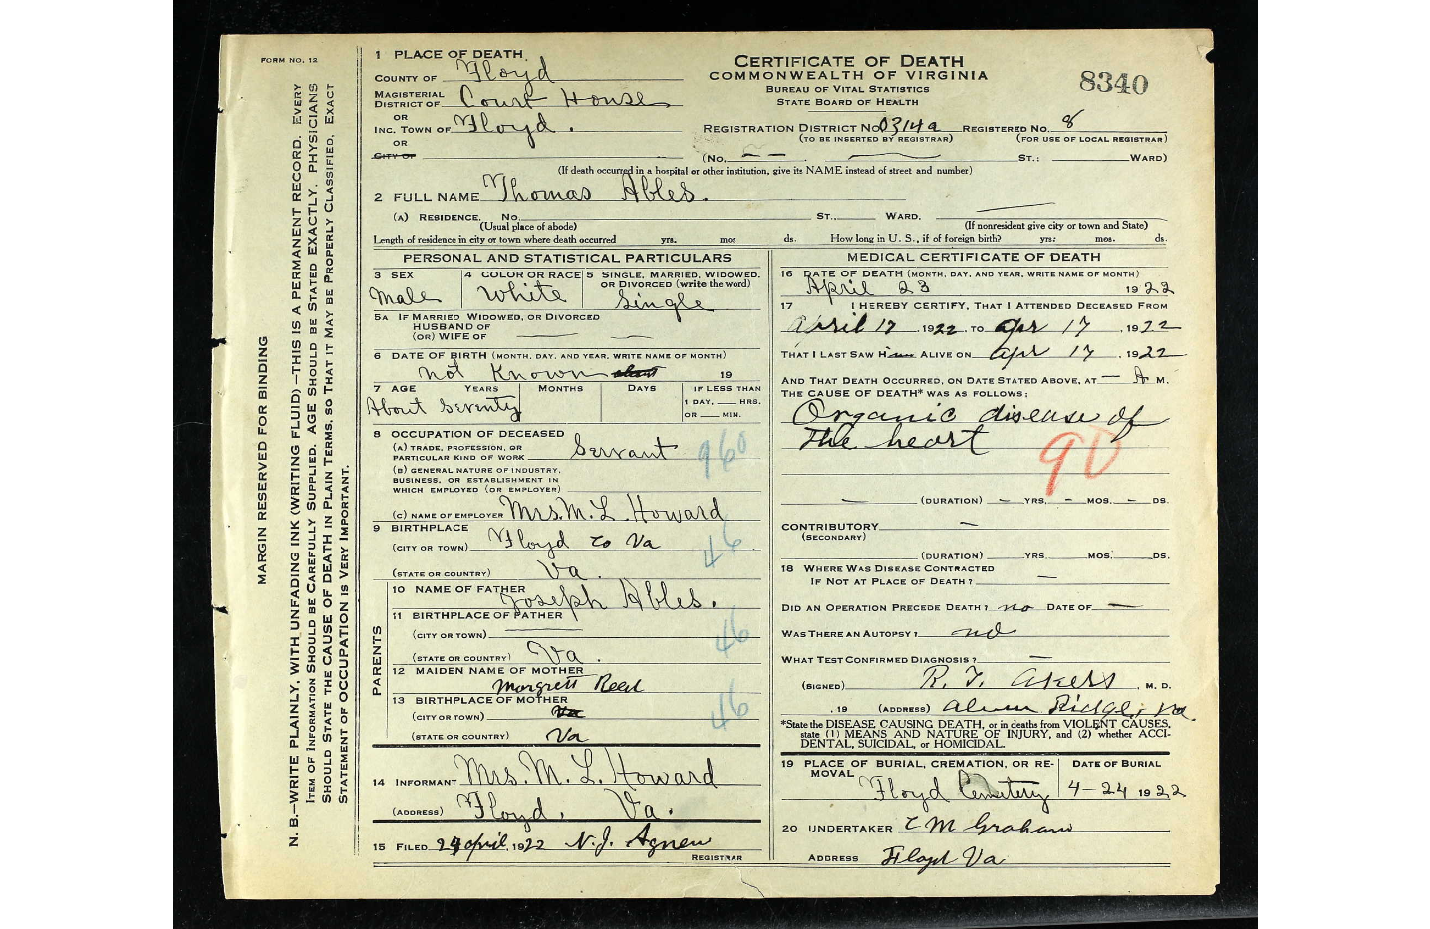 FORM NO. 12
MARGIN RESERVED FOR BINDING
N. B.—WRITE PLAINLY, WITH UNFADING INK (WRITING FLUID)—THIS IS A PERMANENT RECORD. EVERY
ITEM OF INFORMATION SHOULD BE CAREFULLY SUPPLIED. AGE SHOULD BE STATED EXACTLY. PHYSICIANS
SHOULD STATE THE CAUSE OF DEATH IN PLAIN TERMS, SO THAT IT MAY BE PROPERLY CLASSIFIED. EXACT
STATEMENT OF OCCUPATION IS VERY IMPORTANT.
1 PLACE OF DEATH.
COUNTY OF Floyd
MAGISTERIAL DISTRICT OF Court House
OR
INC. TOWN OF Floyd.
OR
CITY OF
CERTIFICATE OF DEATH
COMMONWEALTH OF VIRGINIA
BUREAU OF VITAL STATISTICS
STATE BOARD OF HEALTH
8340
REGISTRATION DISTRICT NO. 0314a REGISTERED NO. 8
(TO BE INSERTED BY REGISTRAR) (FOR USE OF LOCAL REGISTRAR)
(No. — — ST.: WARD)
(If death occurred in a hospital or other institution, give its NAME instead of street and number)
2 FULL NAME Thomas Ables.
(A) RESIDENCE. No. ST., WARD.
(Usual place of abode) (If nonresident give city or town and State)
Length of residence in city or town where death occurred yrs. mos ds. How long in U. S., if of foreign birth? yrs: mos. ds.
PERSONAL AND STATISTICAL PARTICULARS
3 SEX 4 COLOR OR RACE 5 SINGLE, MARRIED, WIDOWED, OR DIVORCED (write the word)
Male White Single
5A IF MARRIED WIDOWED, OR DIVORCED
HUSBAND OF
(OR) WIFE OF
6 DATE OF BIRTH (MONTH, DAY, AND YEAR, WRITE NAME OF MONTH)
not Known 19
7 AGE YEARS MONTHS DAYS IF LESS THAN
1 DAY, HRS.
OR MIN.
About Seventy
8 OCCUPATION OF DECEASED
(A) TRADE, PROFESSION, OR
PARTICULAR KIND OF WORK Servant 960
(B) GENERAL NATURE OF INDUSTRY,
BUSINESS, OR ESTABLISHMENT IN
WHICH EMPLOYED (OR EMPLOYER)
(C) NAME OF EMPLOYER Mrs. M. L. Howard
9 BIRTHPLACE
(CITY OR TOWN) Floyd Co Va 46
(STATE OR COUNTRY) Va.
PARENTS
10 NAME OF FATHER Joseph Ables.
11 BIRTHPLACE OF FATHER
(CITY OR TOWN) 46
(STATE OR COUNTRY) Va.
12 MAIDEN NAME OF MOTHER
Margrett Reed
13 BIRTHPLACE OF MOTHER
(CITY OR TOWN) Va 46
(STATE OR COUNTRY) Va
14 INFORMANT Mrs. M. L. Howard
(ADDRESS) Floyd, Va.
15 FILED 24 april, 1922 N. J. Agnew
REGISTRAR
MEDICAL CERTIFICATE OF DEATH
16 DATE OF DEATH (MONTH, DAY, AND YEAR, WRITE NAME OF MONTH)
April 23 1922
17 I HEREBY CERTIFY, THAT I ATTENDED DECEASED FROM
April 17, 1922, TO Apr 17, 1922
THAT I LAST SAW Him ALIVE ON Apr 17, 1922
AND THAT DEATH OCCURRED, ON DATE STATED ABOVE, AT — A M.
THE CAUSE OF DEATH* WAS AS FOLLOWS:
Organic disease of
the heart
90
— (DURATION) — YRS. — MOS. — DS.
CONTRIBUTORY —
(SECONDARY)
(DURATION) YRS. MOS. DS.
18 WHERE WAS DISEASE CONTRACTED
IF NOT AT PLACE OF DEATH? —
DID AN OPERATION PRECEDE DEATH? no DATE OF —
WAS THERE AN AUTOPSY? no
WHAT TEST CONFIRMED DIAGNOSIS? —
(SIGNED) R. T. Akers, M. D.
, 19 (ADDRESS) Alum Ridge, Va.
*State the DISEASE CAUSING DEATH, or in deaths from VIOLENT CAUSES,
state (1) MEANS AND NATURE OF INJURY, and (2) whether ACCI-
DENTAL, SUICIDAL, or HOMICIDAL.
19 PLACE OF BURIAL, CREMATION, OR RE-
MOVAL DATE OF BURIAL
Floyd Cemetery 4-24 1922
20 UNDERTAKER C M Graham
ADDRESS Floyd Va